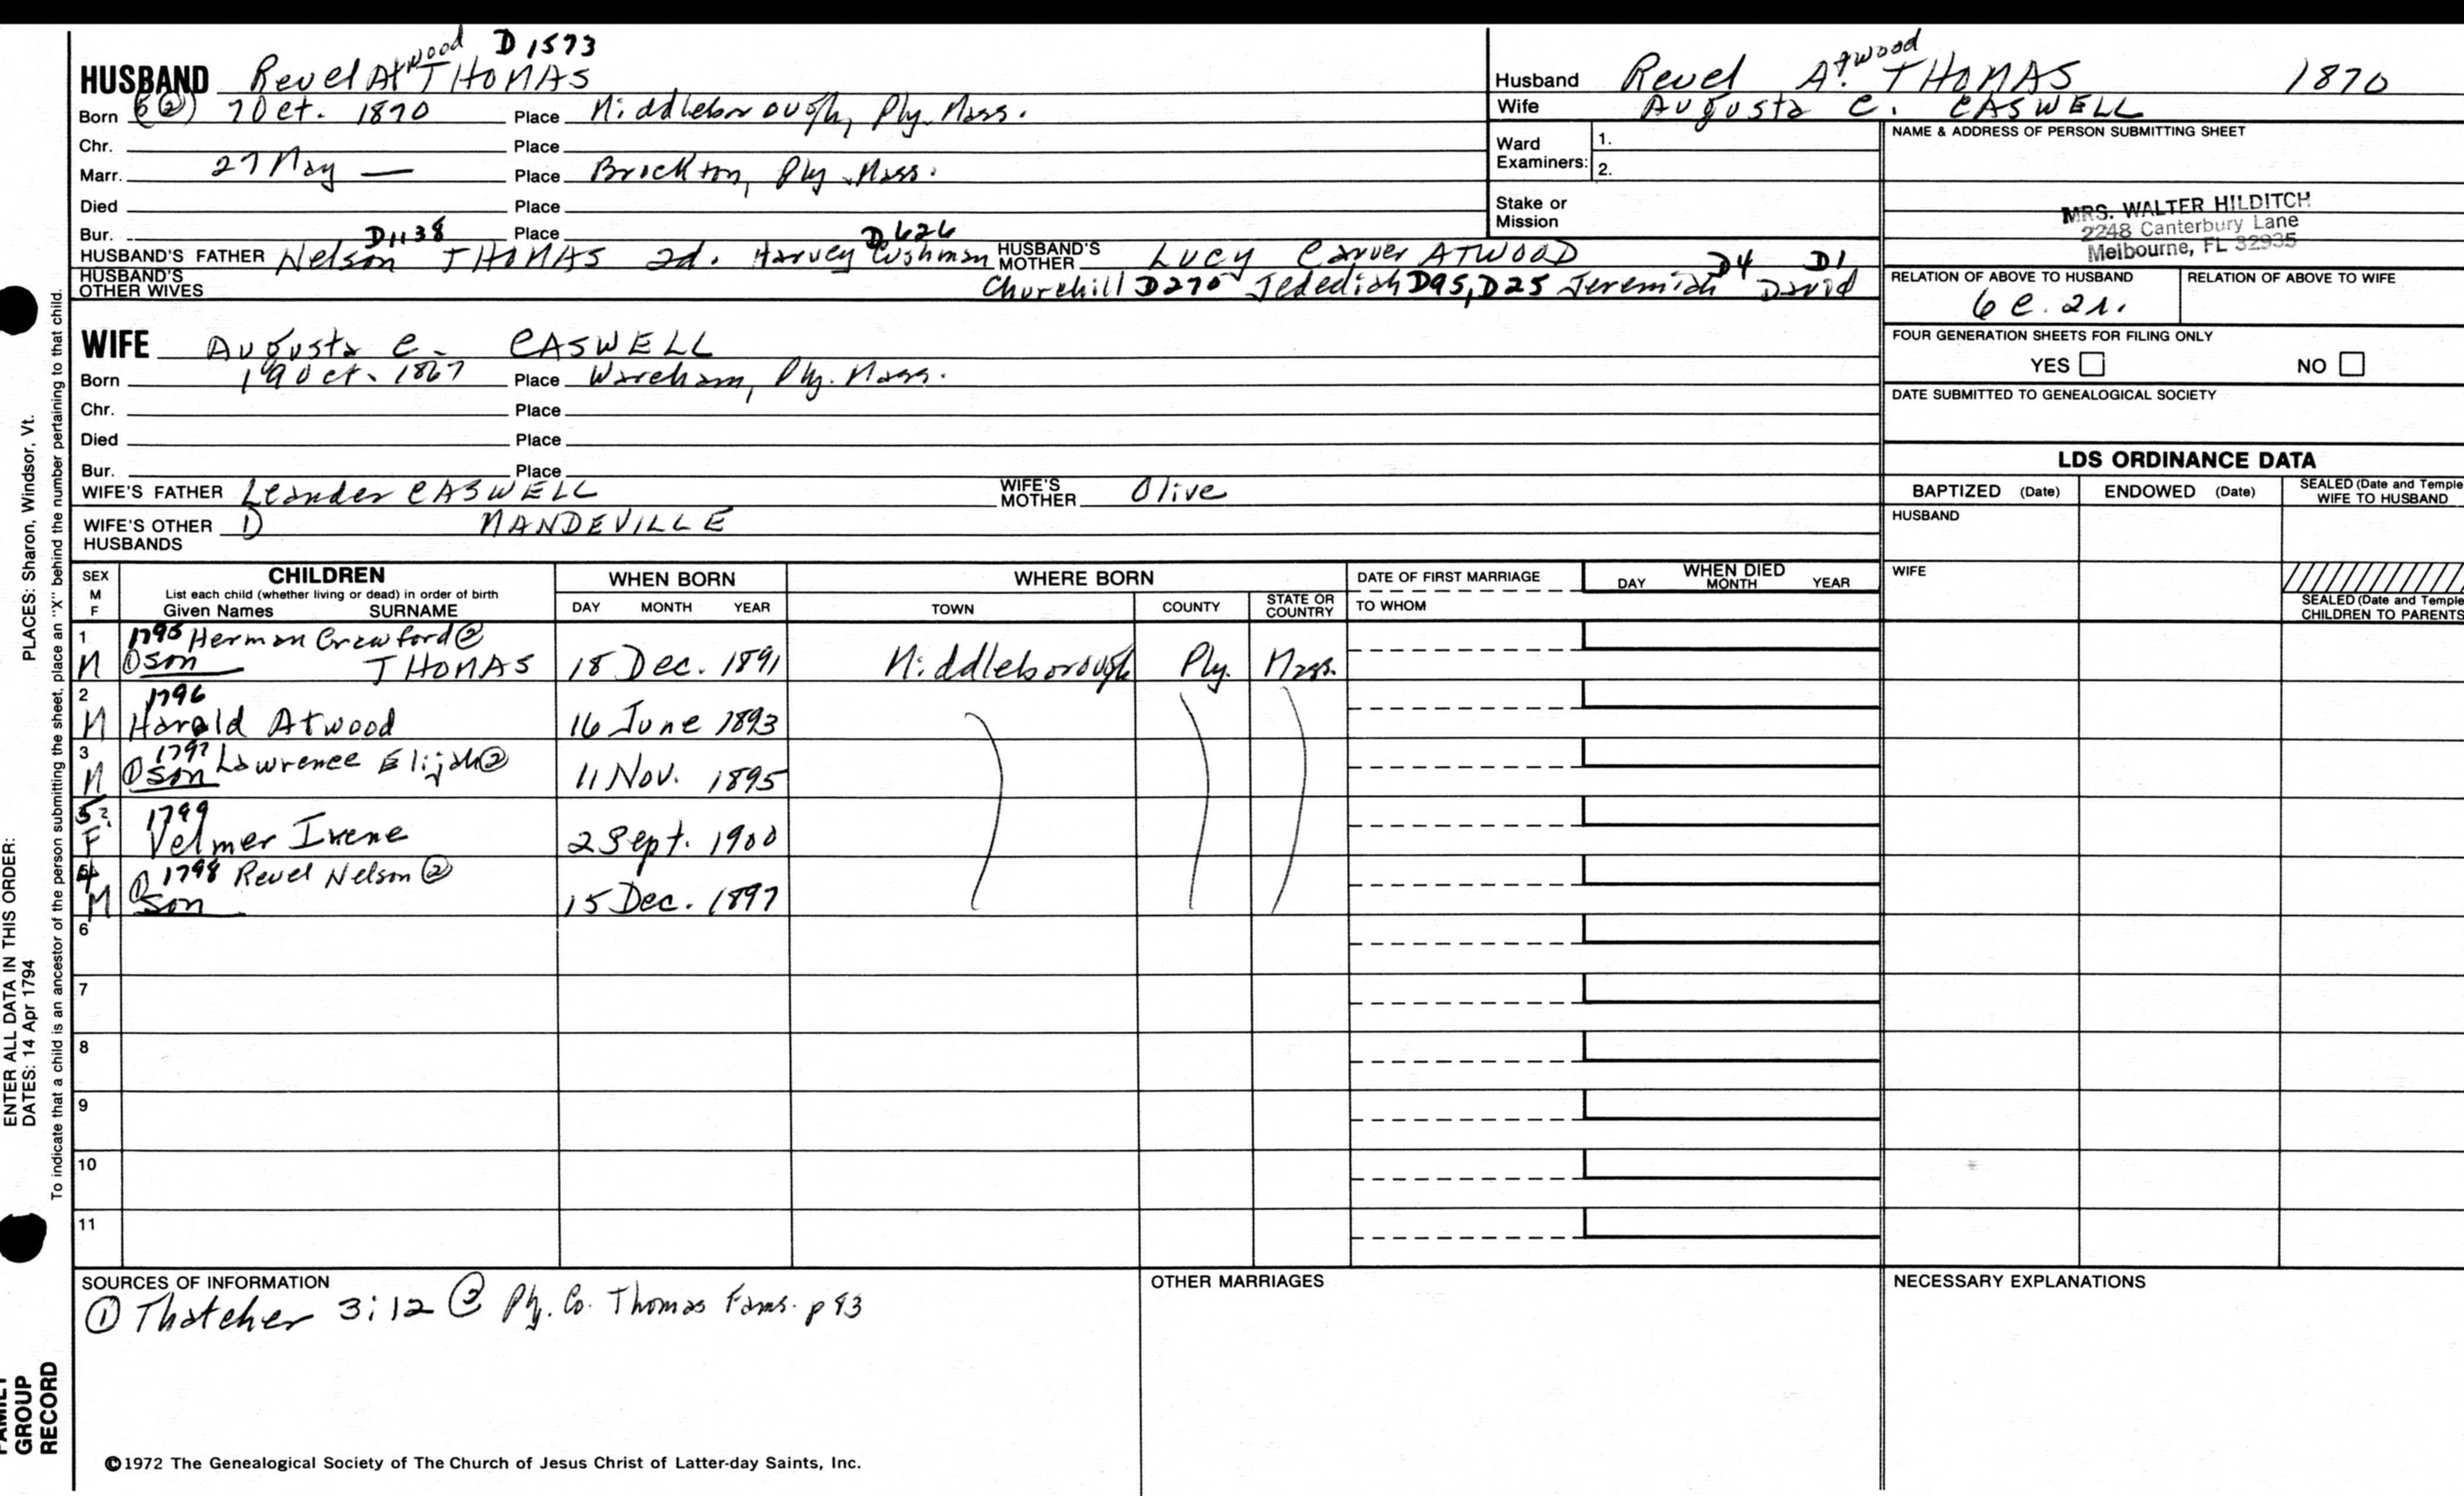 HUSBAND Revel Atwood THOMAS D1573
Born 6(②) 7 Oct. 1870 Place Middleborough, Ply. Mass.
Chr. Place
Marr. 27 May — Place Brockton, Ply. Mass.
Died Place
Bur. Place
HUSBAND'S FATHER Nelson D1138 THOMAS 2d. Harvey Cushman D626 HUSBAND'S MOTHER Lucy Carver ATWOOD
HUSBAND'S OTHER WIVES Churchill D270 Jedediah D95, D25 Jeremiah D4 David D1
Husband Revel Atwood THOMAS 1870
Wife Augusta C. CASWELL
Ward Examiners: 1.
2.
Stake or Mission
NAME & ADDRESS OF PERSON SUBMITTING SHEET
MRS. WALTER HILDITCH
2248 Canterbury Lane
Melbourne, FL 32935
RELATION OF ABOVE TO HUSBAND RELATION OF ABOVE TO WIFE
6 c. 2r.
FOUR GENERATION SHEETS FOR FILING ONLY
YES NO
DATE SUBMITTED TO GENEALOGICAL SOCIETY
WIFE Augusta C. CASWELL
Born 19 Oct. 1867 Place Wareham, Ply. Mass.
Chr. Place
Died Place
Bur. Place
WIFE'S FATHER Leander CASWELL WIFE'S MOTHER Olive
WIFE'S OTHER HUSBANDS MANDEVILLE
LDS ORDINANCE DATA
BAPTIZED (Date) ENDOWED (Date) SEALED (Date and Temple) WIFE TO HUSBAND
HUSBAND
WIFE
SEALED (Date and Temple) CHILDREN TO PARENTS
SEX M F
CHILDREN
List each child (whether living or dead) in order of birth
Given Names SURNAME
WHEN BORN
DAY MONTH YEAR
WHERE BORN
TOWN COUNTY STATE OR COUNTRY
DATE OF FIRST MARRIAGE
TO WHOM
WHEN DIED
DAY MONTH YEAR
1 1795 Herman Crawford ②
M ① son THOMAS 18 Dec. 1891 Middleborough Ply. Mass.
2 1796
M Harold Atwood 16 June 1893
3 1797 Lawrence Elijah ②
M ① son 11 Nov. 1895
5? 1799
F Velmer Irene 2 Sept. 1900
4 1798 Revel Nelson ②
M ① son 15 Dec. 1897
6
7
8
9
10
11
SOURCES OF INFORMATION
① Thatcher 3:12 ② Ply. Co. Thomas Fams. p 93
OTHER MARRIAGES
NECESSARY EXPLANATIONS
©1972 The Genealogical Society of The Church of Jesus Christ of Latter-day Saints, Inc.
PLACES: Sharon, Windsor, Vt.
ENTER ALL DATA IN THIS ORDER:
DATES: 14 Apr 1794
To indicate that a child is an ancestor of the person submitting the sheet, place an "X" behind the number pertaining to that child.
FAMILY
GROUP
RECORD